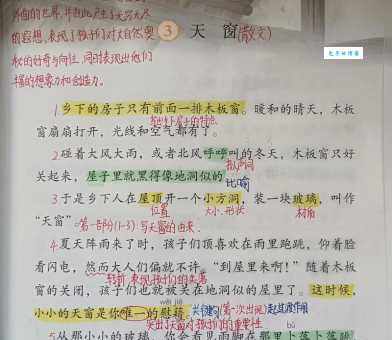 界面的世界,并由此产生了无穷无尽
的遐想,表现了孩子们对大自然奥
秘的好奇与向往,同时表现出他们
丰富的想象力和创造力。
3 天 窗(散文)
1 乡下的房子只有前面一排木板窗。暖和的晴天,木板
窗扇扇打开,光线和空气都有了。
2 碰着大风大雨,或者北风呼呼叫的冬天,木板窗只好
拟声词
关起来,屋子里就黑得像地洞似的。
比喻
3 于是乡下人在屋顶开一个小方洞,装一块玻璃,叫作
位置 大小、形状 材质
“天窗”。
第一部分(1-3):写天窗的由来。
4 夏天阵雨来了时,孩子们顶喜欢在雨里跑跳,仰着脸
看闪电,然而大人们偏就不许。“到屋里来啊!”随着木板
转折 表现孩子们的失落
窗的关闭,孩子们也就被关在地洞似的屋里了。这时候,
wèi jiè
小小的天窗是你唯一的慰藉。关键句(第一次出现)起过渡作用
突出天窗对孩子们的重要性
bǔ
5 从那小小的玻璃,你会看见雨脚在那里卜落卜落跳,